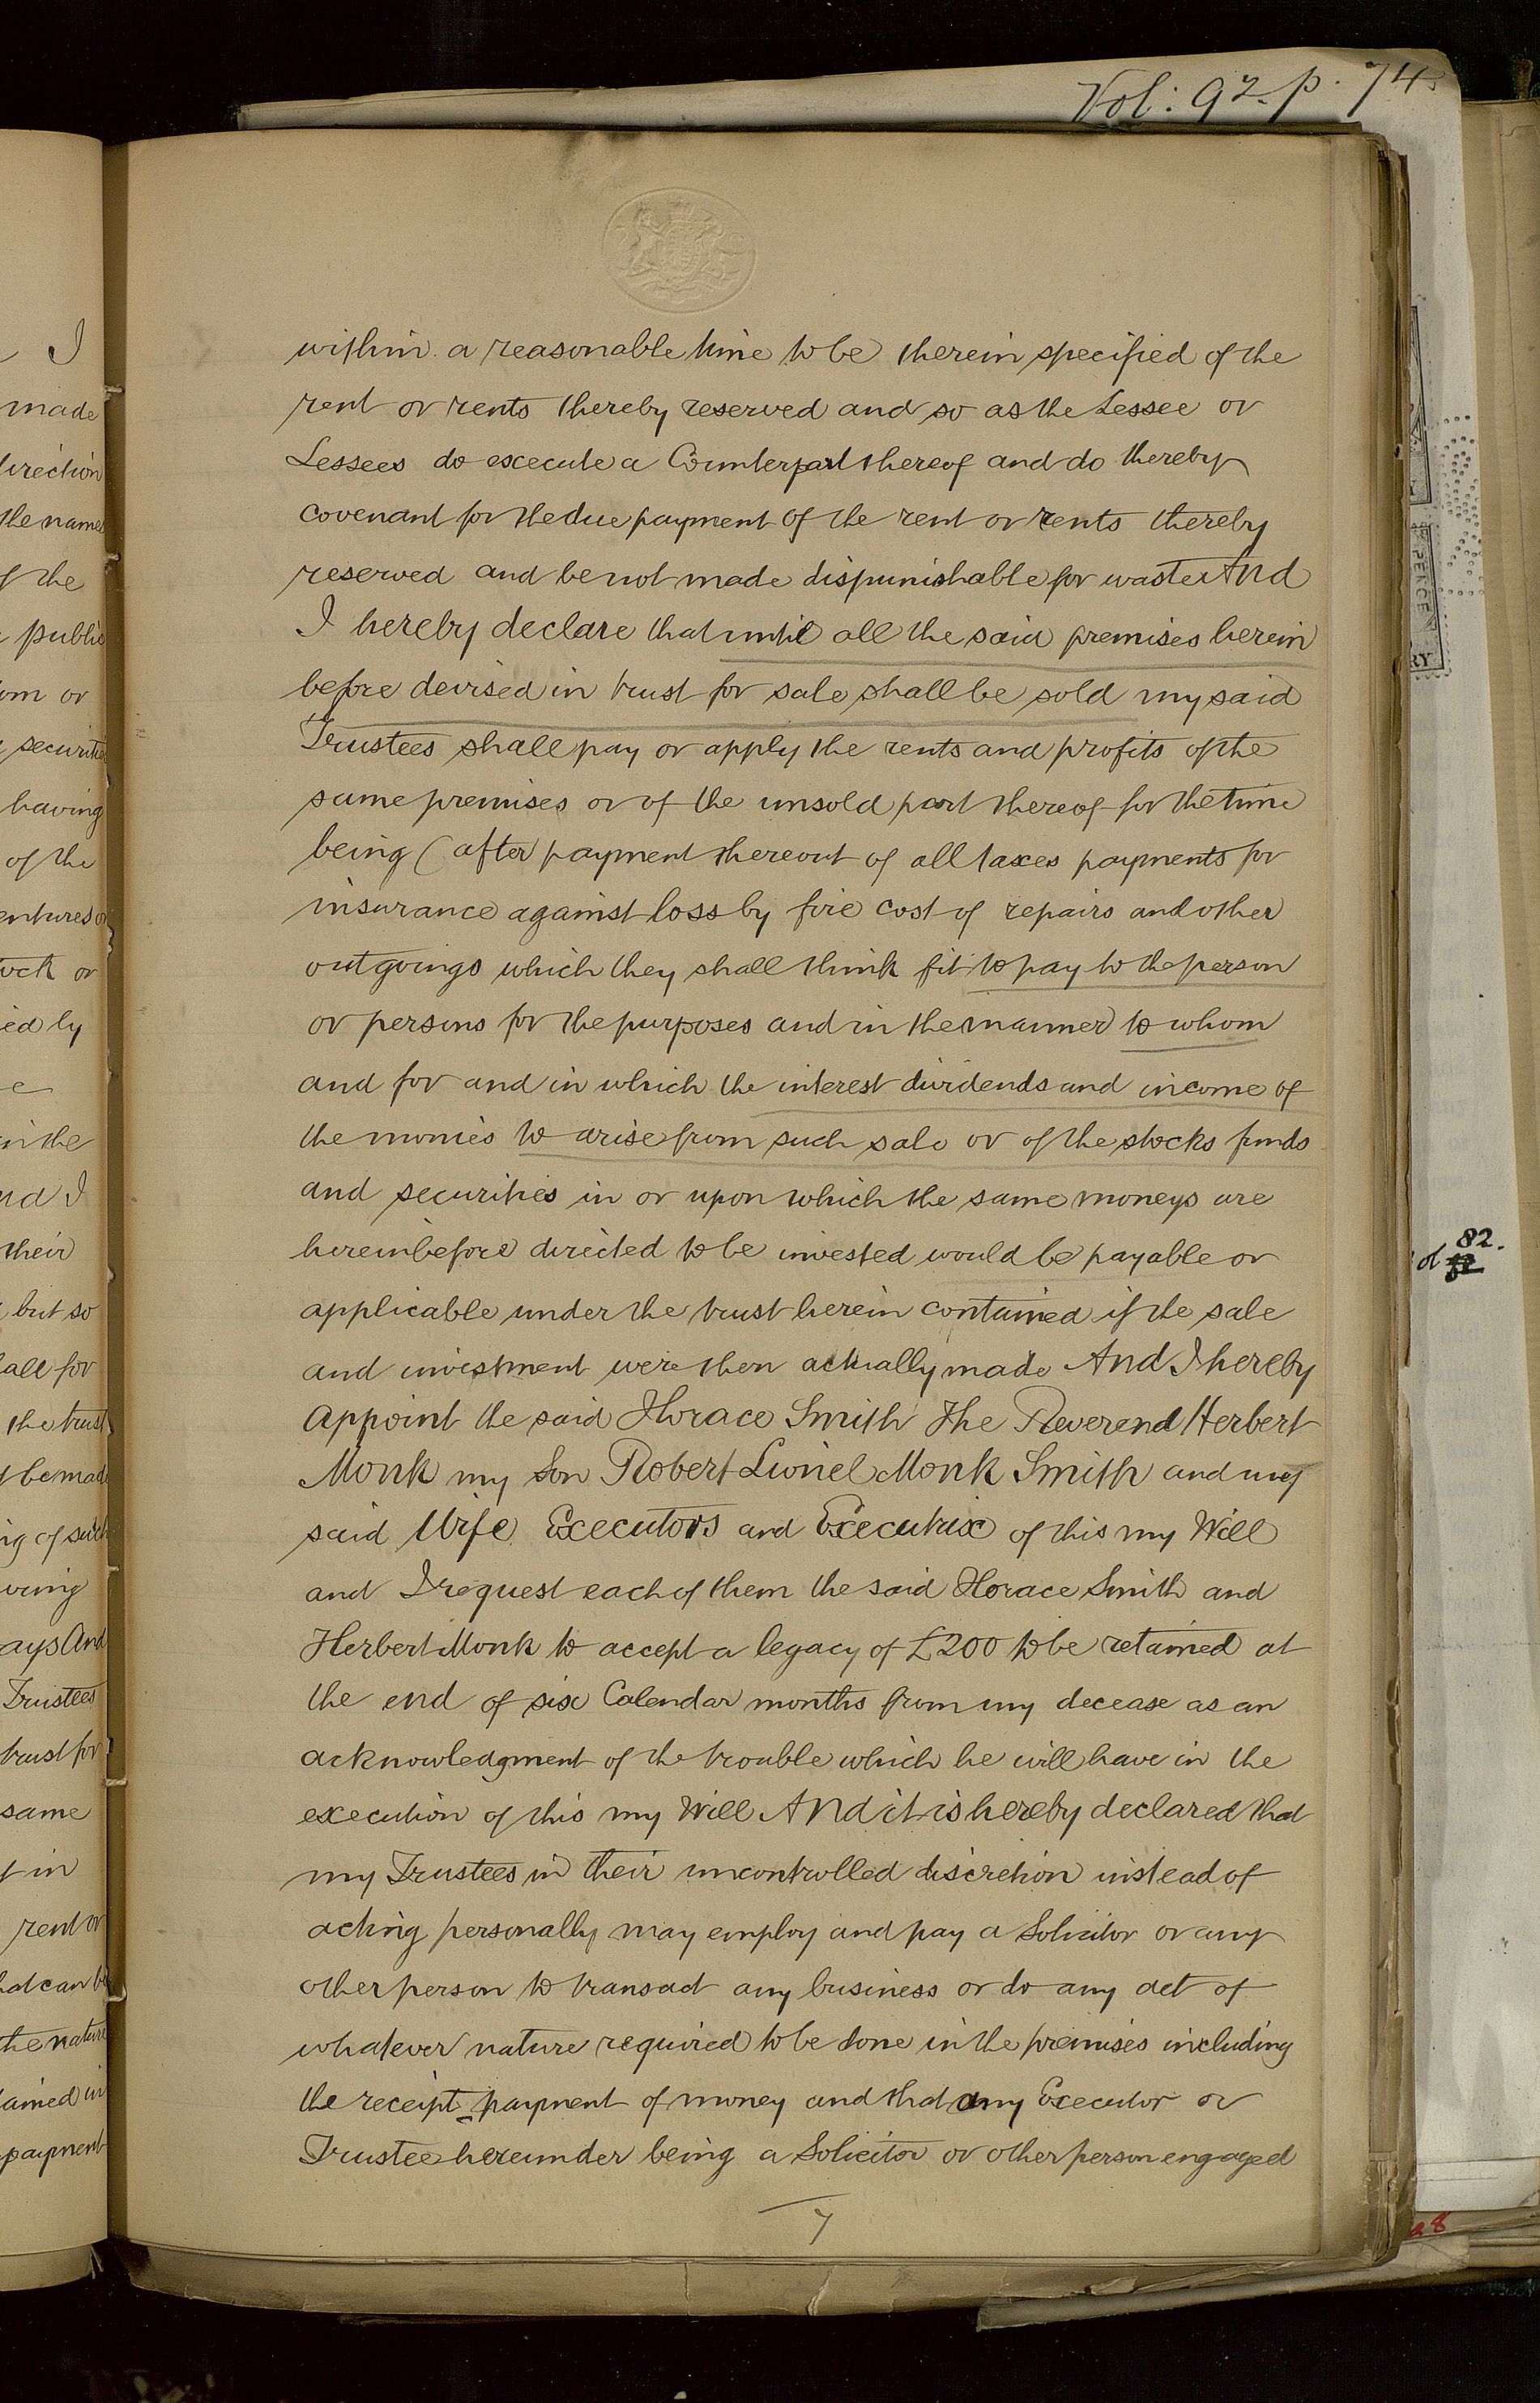 Vol: 92. p. 74.
within a reasonable time to be therein specified of the
rent or rents thereby reserved and so as the Lessee or
Lessees do execute a Counterpart thereof and do thereby
covenant for the due payment of the rent or rents thereby
reserved and be not made dispunishable for waste And
I hereby declare that until all the said premises herein
before devised in trust for sale shall be sold my said
Trustees shall pay or apply the rents and profits of the
same premises or of the unsold part thereof for the time
being (after payment thereout of all taxes payments for
insurance against loss by fire cost of repairs and other
outgoings which they shall think fit to pay to the person
or persons for the purposes and in the manner to whom
and for and in which the interest dividends and income of
the monies to arise from such sale or of the stocks funds
and securities in or upon which the same moneys are
hereinbefore directed to be invested would be payable or
applicable under the trust herein contained if the sale
and investment were then actually made And I hereby
Appoint the said Horace Smith The Reverend Herbert
Monk my Son Robert Lionel Monk Smith and my
said Wife Executors and Executrix of this my Will
and I request each of them the said Horace Smith and
Herbert Monk to accept a legacy of £200 to be retained at
the end of six Calendar months from my decease as an
acknowledgment of the trouble which he will have in the
execution of this my Will And it is hereby declared that
my Trustees in their uncontrolled discretion instead of
acting personally may employ and pay a Solicitor or any
other person to transact any business or do any act of
whatever nature required to be done in the premises including
the receipt payment of money and that any Executor or
Trustee hereunder being a Solicitor or other person engaged
7
I
made
direction
the names
of the
public
om or
securities
having
of the
entures or
ock or
ied by
e
in the
nd I
their
but so
all for
the trust
be made
ng of such
ving
ays And
Trustees
trust for
same
in
rent or
hat can be
the nature
ained in
payment
PENCE
RY
of 82.
28